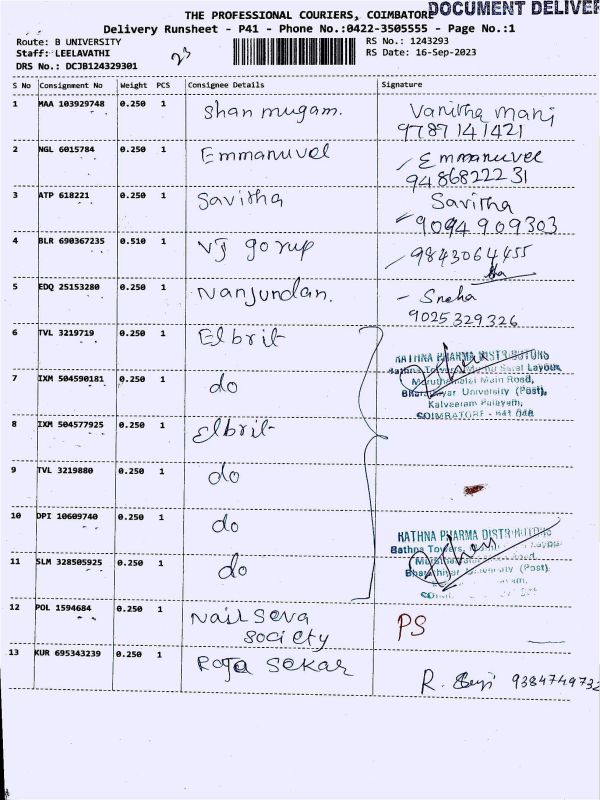 DOCUMENT DELIVER
THE PROFESSIONAL COURIERS, COIMBATORE
Delivery Runsheet - P41 - Phone No.:0422-3505555 - Page No.:1
Route: B UNIVERSITY
Staff: LEELAVATHI
DRS No.: DCJB124329301
23
RS No.: 1243293
RS Date: 16-Sep-2023
S No Consignment No Weight PCS Consignee Details Signature
1 MAA 103929748 0.250 1 Shanmugam. Vanitha mani
9787141421
2 NGL 6015784 0.250 1 Emmanuvel Emmanuvel
9486822231
3 ATP 618221 0.250 1 Savitha Savitha
9094909303
4 BLR 690367235 0.510 1 VJ gorup 9843064455
5 EDQ 25153280 0.250 1 Nanjundan. - Sneha
9025329326
6 TVL 3219719 0.250 1 Elbrit
RATHNA PHARMA DISTRIBUTORS
Rathna Towers, Layout,
7 IXM 504590181 0.250 1 do
Maruthamalai Main Road,
Bharathiyar University (Post),
Kalveeram Palayam,
COIMBATORE - 641 046
8 IXM 504577925 0.250 1 Elbrit
9 TVL 3219880 0.250 1 do
10 DPI 10609740 0.250 1 do
RATHNA PHARMA DISTRIBUTORS
Rathna Towers, Layout
11 SLM 328505925 0.250 1 do
Bharathiyar University (Post)
12 POL 1594684 0.250 1 Nail Seva
Society PS
13 KUR 695343239 0.250 1 Roja Sekar
R. 9384749732